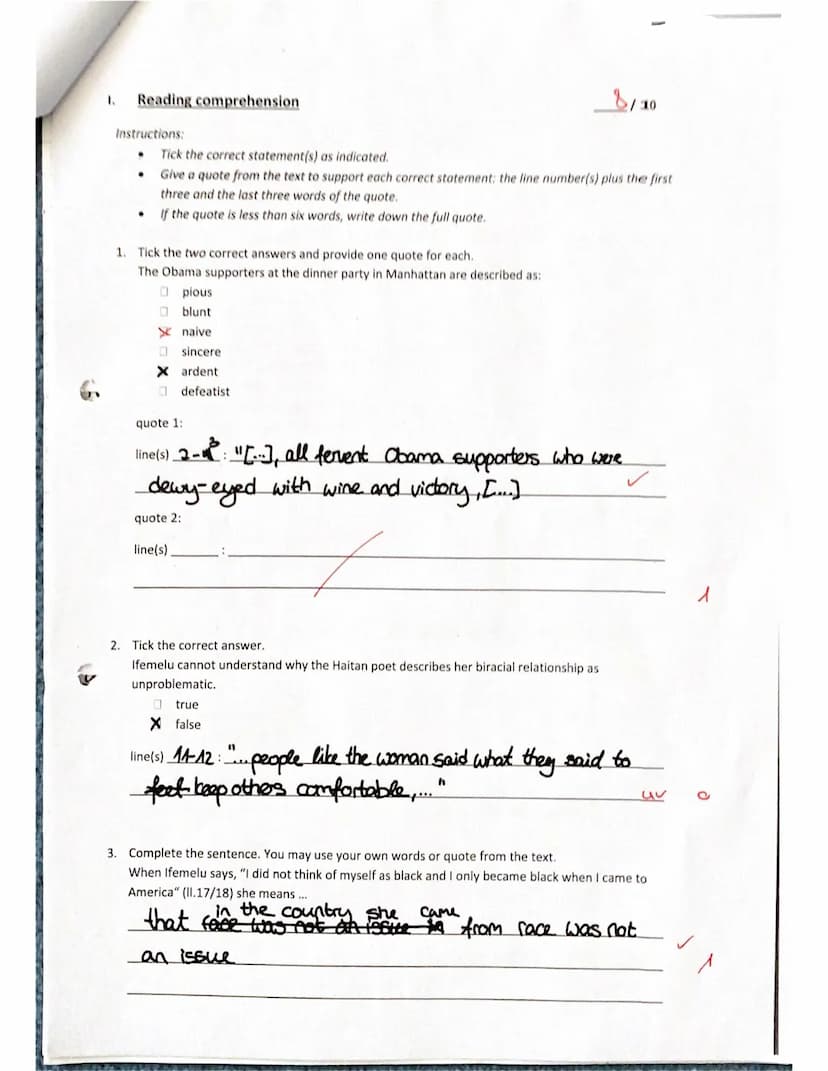 8/10
I. Reading comprehension
Instructions:
• Tick the correct statement(s) as indicated.
• Give a quote from the text to support each correct statement: the line number(s) plus the first
three and the last three words of the quote.
• If the quote is less than six words, write down the full quote.
1. Tick the two correct answers and provide one quote for each.
The Obama supporters at the dinner party in Manhattan are described as:
pious
blunt
naive
sincere
ardent
defeatist
quote 1:
line(s) 2-3: "[...], all fervent Obama supporters who were
dewy-eyed with wine and victory, [...]
quote 2:
line(s) :
1
2. Tick the correct answer.
Ifemelu cannot understand why the Haitan poet describes her biracial relationship as
unproblematic.
true
false
line(s) 11-12: "...people like the woman said what they said to
feel keep others comfortable,..."
uv 0
3. Complete the sentence. You may use your own words or quote from the text.
When Ifemelu says, "I did not think of myself as black and I only became black when I came to
America" (ll.17/18) she means ...
in the country she came
that race was not an issue in from race was not
an issue
1